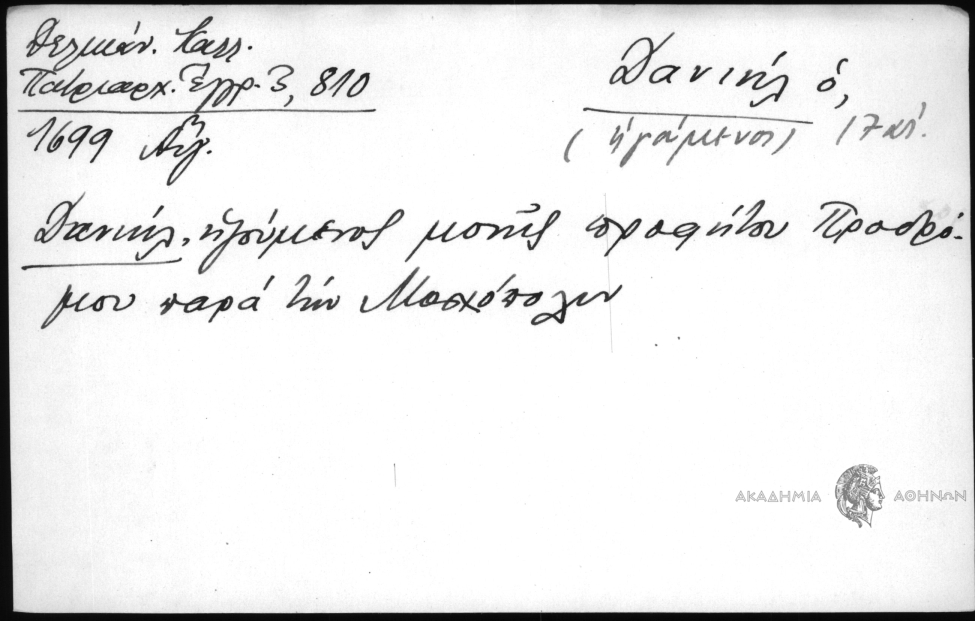 Δελικάν. Καλλ.
Πατριαρχ. Ἔγγρ. 3, 810
1699 Αὔγ.
Δανιήλ ὁ,
(ἡγούμενος) 17 αἰ.
Δανιήλ, ἡγούμενος μονῆς προφήτου Προδρό-
μου παρά τήν Μοσχόπολιν
ΑΚΑΔΗΜΙΑ ΑΘΗΝΩΝ